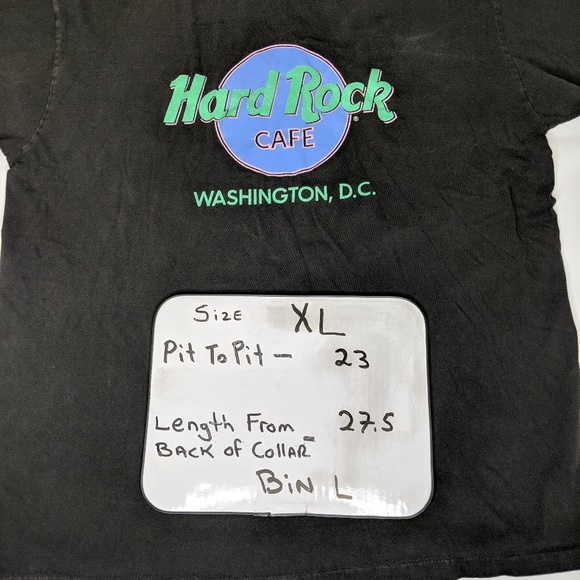 Hard Rock
®
CAFE
WASHINGTON, D.C.
Size XL
Pit To Pit - 23
Length From
Back of Collar - 27.5
Bin L